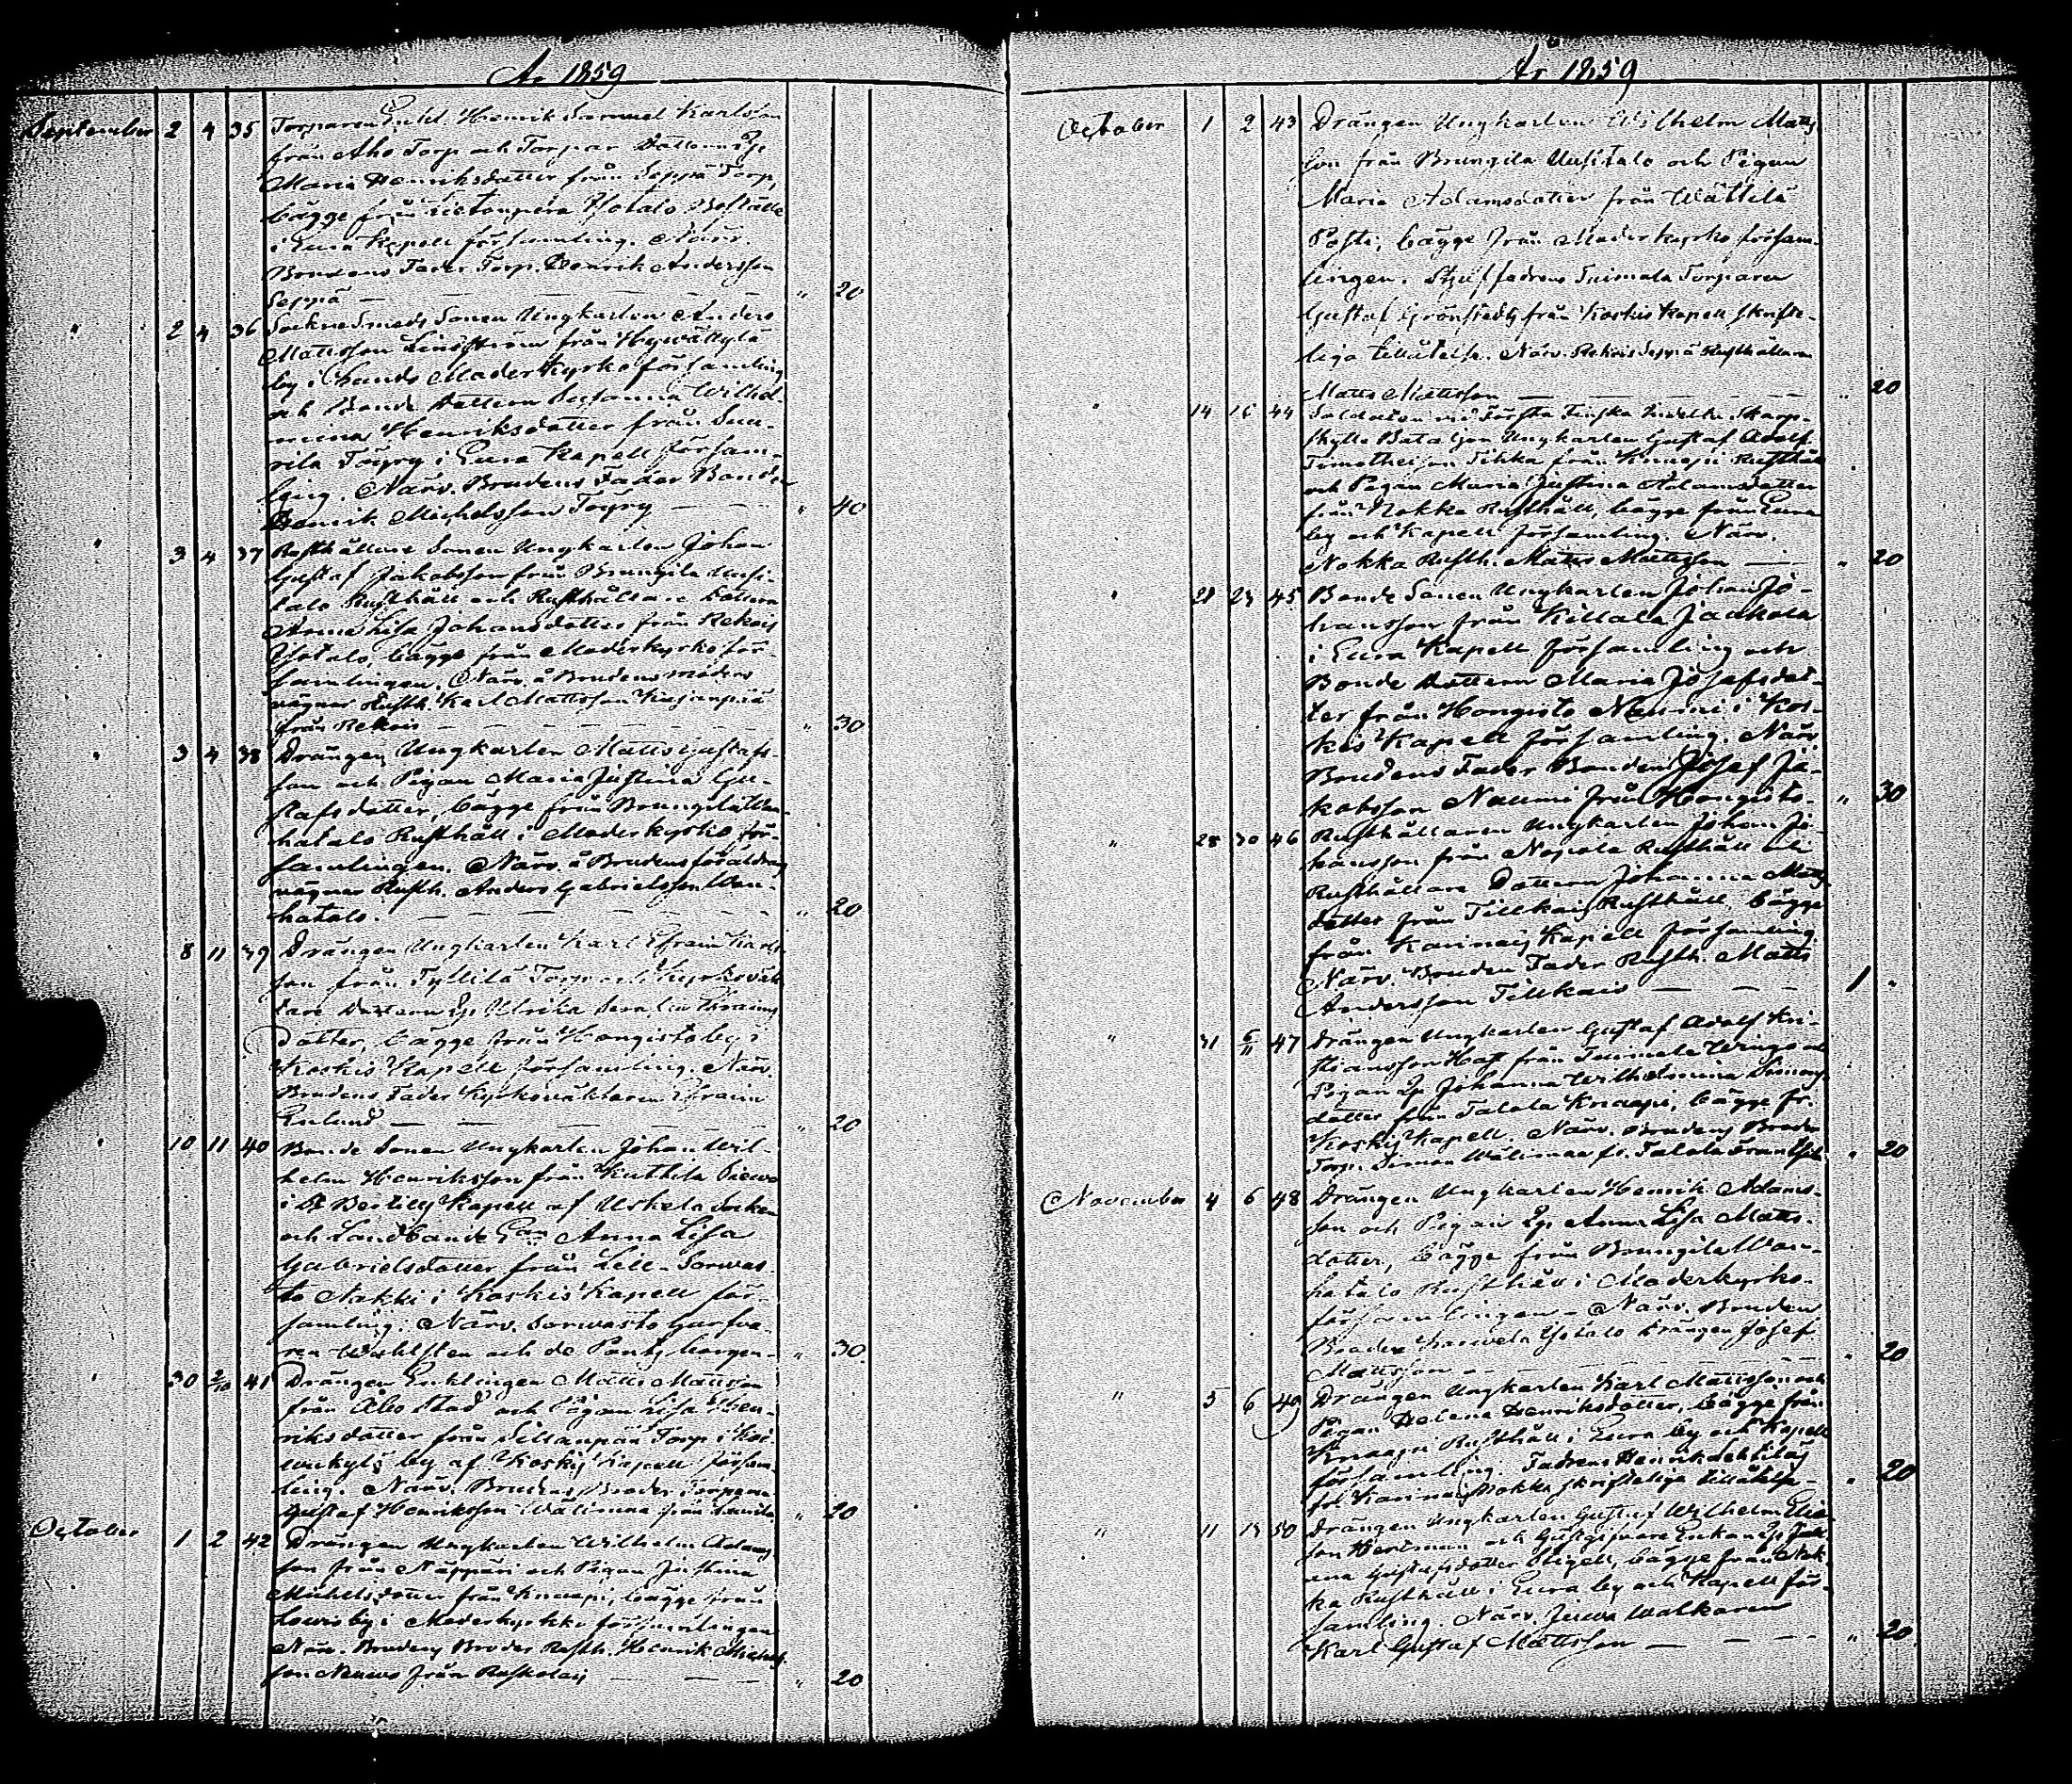 År 1859
September 2 4 35 Torparen Enkl. Henrik Samuel Karlsson
från Aho Torp och Torpar Dottern Jgf
Maria Henriksdotter från Seppä Torp,
bägge från Yliotalo Boställe
i Eura Kapell församling. Närv.
Brudens Fader Torp. Henrik Andersson
Seppä — " 20
" 2 4 36 Sockne Smeds Sonen Ungkarlen Anders
Mattsson Lindström från Hywättylä
by i Lundo Moderkyrko församling
och Bonde Dottern Susanna Wilhel-
mina Henriksdotter från Suu-
rila Töyry i Eura Kapell Försam-
ling. Närv. Brudens Fader Bonden
Henrik Michelsson Töyry — " 40
" 3 4 37 Rusthållare Sonen Ungkarlen Johan
Gustaf Jakobsson från Brungila Uusi-
talo Rusthåll och Rusthållare Dottern
Anna Lisa Johansdotter från Rekois
Yliotalo, bägge från Moderkyrko för-
samlingen. Närv. å Brudens moders
vägnar Rusth. Karl Mattsson
från Rekois — " 30
" 3 4 38 Drängen Ungkarlen Matts Gustafs-
son och Pigan Maria Justina Gu-
stafsdotter, bägge från Brungila Wan-
hatalo Rusthåll i Moderkyrko för-
samlingen. Närv. å Brudens föräldrars
vägnar Rusth. Anders Gabrielsson Wan-
hatalo. — " 20
8 11 39 Drängen Ungkarlen Karl Efraim Karls-
son från Tyllilä Torp och Kyrkoväk-
tare Dottern Jgf Ulrika Serafia Efraims
Dotter, bägge från Hongisto by i
Koskis Kapell församling. Närv.
Brudens Fader Kyrkoväktaren Efraim
Enlund — " 20
" 10 11 40 Bonde Sonen Ungkarlen Johan Wil-
helm Henriksson från Kuttila
i St Bertils Kapell af Uskela Socken
och Landbonde Anna Lisa
Gabrielsdotter från Lill-Sorwas-
to Nakki i Koskis Kapell för-
samling. Närv. Sorwasto
Wahlsten och de — " 30
" 30 2/10 41 Drängen Enklingen Matts Mattsson
från Åbo Stad och Pigan Lisa Hen-
riksdotter från Sillanpää Torp i Koi-
wukylä by af Koskis Kapell försam-
ling. Närv. Brudens Broder Torparen
Gustaf Henriksson Wälimaa från " 20
October 1 2 42 Drängen Ungkarlen Wilhelm Adams-
son från Näppäri och Pigan Justina
Michelsdotter från Knaapi, bägge från
by i Moderkyrko församlingen
Närv. Brudens Broder Rusth. Henrik Michels-
son från — " 20
År 1859
October 1 2 43 Drängen Ungkarlen Wilhelm Matts-
son från Brungila Uusitalo och Pigan
Maria Adamsdotter från Wättelä
Posti, bägge från Moderkyrko försam-
lingen. Styffadrens Tuimala Torparen
Gustaf Grönstedts från Koskis Kapell skrift-
liga tillåtelse. Närv. Rekois Seppä Rusthållaren
Matts Mattsson — " 20
" 14 16 44 Soldaten vid Första Finska Indelta Skarp-
skytte Bataljon Ungkarlen Gustaf Adolf
Timotheisson Tikka från Knaapi Rusthåll
och Pigan Maria Justina Adamsdotter
från Nokka Rusthåll, bägge från Eura
by och Kapell församling. Närv.
Nokka Rusth. Matts Mattsson — " 20
" 21 23 45 Bonde Sonen Ungkarlen Johan Jo-
hansson från Killala Jaakola
i Eura Kapell församling och
Bonde Dottern Maria Josefsdot-
ter från Hongisto Naumi i Kos-
kis Kapell församling. Närv
Brudens Fader Bonden Josef Ja-
kobsson Naumi från Hongisto. " 30
" 28 30 46 Rusthållaren Ungkarlen Johan Jo-
hansson från Nopola Rusthåll och
Rusthållare Dottern Johanna Matts-
dotter från Tillkais Rusthåll, bägge
från Karinais Kapell församling
Närv. Bruden Fader Rusth. Matts
Andersson Tillkais — 1 "
" 31 6/11 47 Drängen Ungkarlen Gustaf Adolf Kri-
stiansson från Tuimala och
Pigan Jgf Johanna Wilhelmina Simons-
dotter från Talola Knaapi, bägge fr.
Koskis Kapell. Närv. Brudens Broder
Torp. Simon Wälimaa fr. Talola " 20
November 4 6 48 Drängen Ungkarlen Henrik Adams-
son och Pigan Jgf Anna Lisa Matts-
dotter, bägge från Brungila Wan-
hatalo Rusthåll i Moderkyrko-
församlingen — Närv. Bruden
Broder Yliotalo Drängen Josef
Mattsson — " 20
" 5 6 49 Drängen Ungkarlen Karl Mattsson och
Pigan Helena Henriksdotter, bägge från
Knaapi Rusthåll i Eura by och Kapell
församling. Fadrens Henrik
från Karinais Nokka skriftliga tillåtelse — " 20
" 11 13 50 Drängen Ungkarlen Gustaf Wilhelm Elia-
son Hertman och Enkan
Gustafsdotter Stigell, bägge från Nok-
ka Rusthåll i Eura by och Kapell för-
samling. Närv. Juwa Walkaren
Karl Gustaf Mattsson — " 20